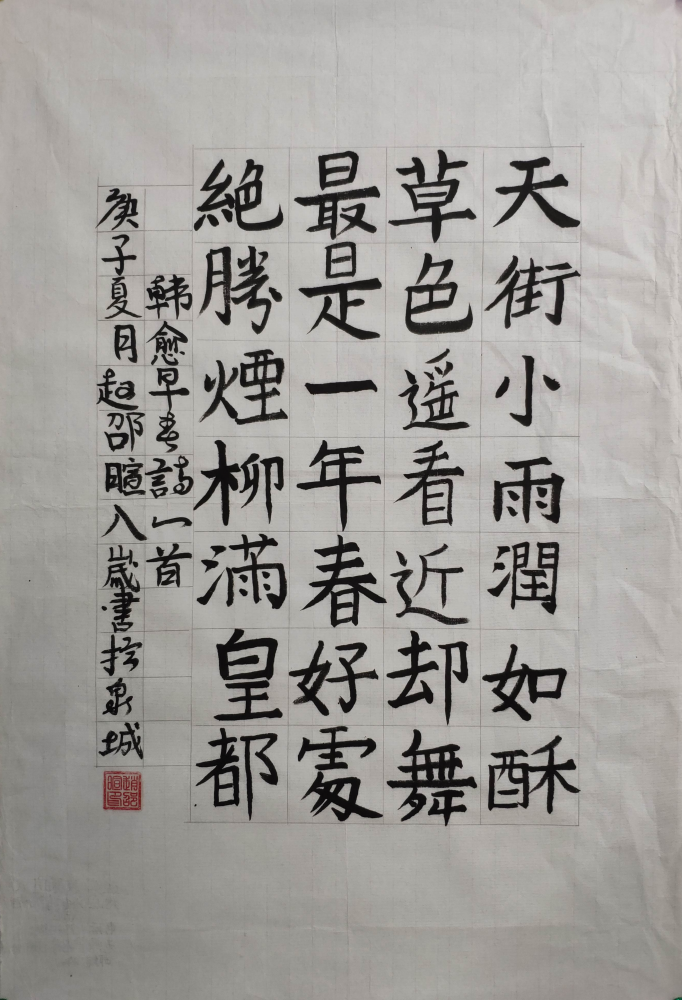 天街小雨潤如酥
草色遥看近却舞
最是一年春好處
絕勝煙柳滿皇都
韩愈早春詩一首
庚子夏月赵邵暄八歲書於泉城